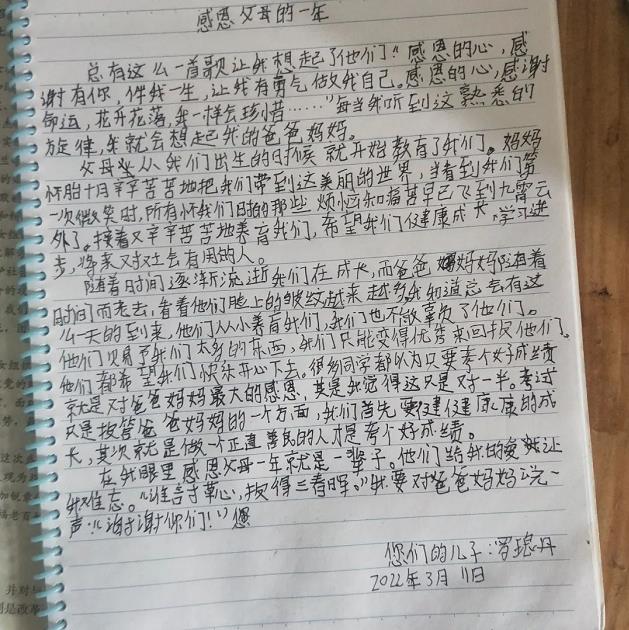 感恩父母的一年
总有这么一首歌让我想起了他们“感恩的心,感
谢有你,伴我一生,让我有勇气做我自己。感恩的心,感谢
命运,花开花落,我一样会珍惜……”每当我听到这熟悉的
旋律,我就会想起我的爸爸妈妈。
父母从我们出生的时候就开始教育了我们。妈妈
怀胎十月辛辛苦苦地把我们带到这美丽的世界,当看到我们第
一次微笑时,所有怀我们时的那些烦恼和痛苦早已飞到九霄云
外了。接着又辛辛苦苦地养育我们,希望我们健康成长,学习进
步,将来对社会有用的人。
随着时间逐渐流逝我们在成长,而爸爸妈妈随着
时间而老去,看着他们脸上的皱纹越来越多我知道总会有这
么一天的到来,他们从小养育我们,我们也不做辜负了他们。
他们给予我们太多的东西,我们只能变得优秀来回报他们。
他们都希望我们快乐开心下去。很多同学都以为只要考个好成绩
就是对爸爸妈妈最大的感恩,其是我觉得这只是对一半。考试
只是报答爸爸妈妈的一个方面,我们首先要健健康康的成
长,其次就是做一个正直善良的人才是考个好成绩。
在我眼里感恩父母一年就是一辈子。他们给我的爱让
我难忘。“谁言寸草心,报得三春晖。”我要对爸爸妈妈说一
声:“谢谢你们!”
您们的儿子:罗 丹
2022年3月11日